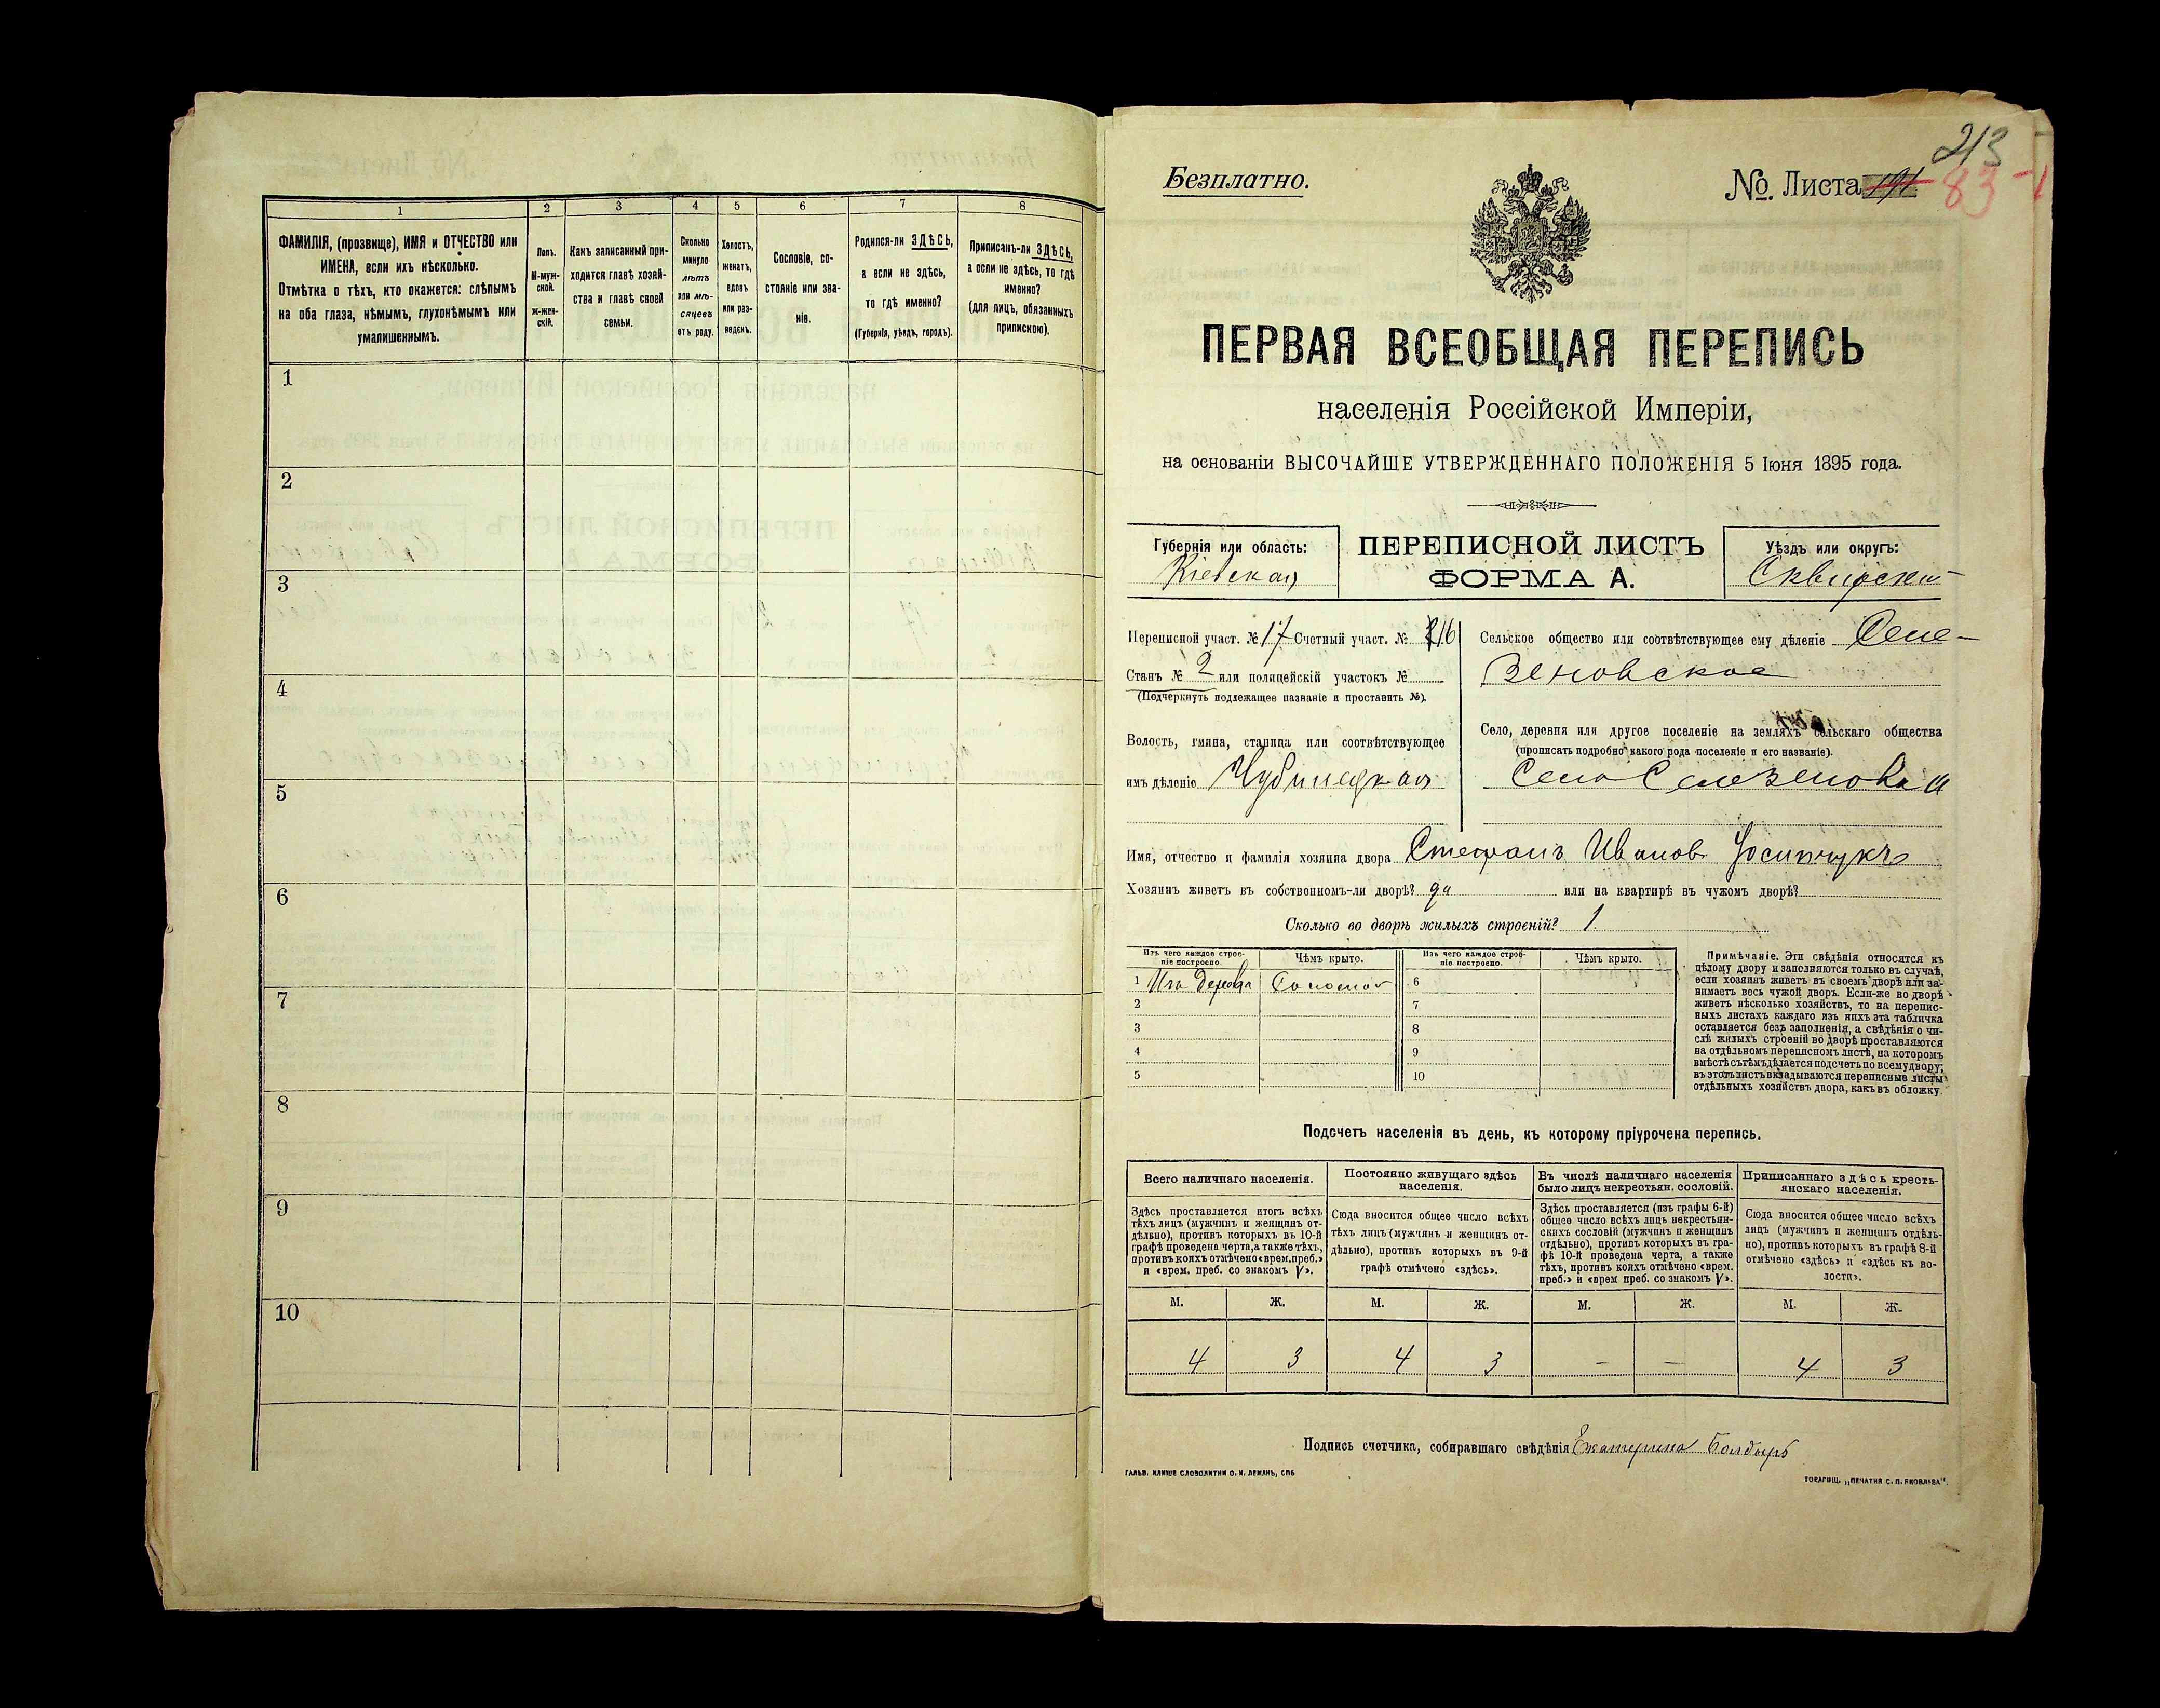 1 2 3 4 5 6 7 8
ФАМИЛІЯ, (прозвище), ИМЯ и ОТЧЕСТВО или
ИМЕНА, если ихъ нѣсколько.
Отмѣтка о тѣхъ, кто окажется: слѣпымъ
на оба глаза, нѣмымъ, глухонѣмымъ или
умалишеннымъ.
Полъ.
М-муж-
ской.
ж-жен-
скій.
Какъ записанный при-
ходится главѣ хозяй-
ства и главѣ своей
семьи.
Сколько
минуло
лѣтъ
или мѣ-
сяцевъ
отъ роду.
Холостъ,
женатъ,
вдовъ
или раз-
веденъ.
Сословіе, со-
стояніе или зва-
ніе.
Родился-ли ЗДѢСЬ,
а если не здѣсь,
то гдѣ именно?
(Губернія, уѣздъ, городъ).
Приписанъ-ли ЗДѢСЬ,
а если не здѣсь, то гдѣ
именно?
(для лицъ, обязанныхъ
припискою).
1
2
3
4
5
6
7
8
9
10
213
Безплатно.
№. Листа 191 83
ПЕРВАЯ ВСЕОБЩАЯ ПЕРЕПИСЬ
населенія Россійской Имперіи,
на основаніи ВЫСОЧАЙШЕ УТВЕРЖДЕННАГО ПОЛОЖЕНІЯ 5 Іюня 1895 года.
Губернія или область:
Кіевская
ПЕРЕПИСНОЙ ЛИСТЪ
ФОРМА А.
Уѣздъ или округъ:
Сквирскій
Переписной участ. № 17 Счетный участ. № 16
Станъ № 2 или полицейскій участокъ №
(Подчеркнуть подлежащее названіе и проставить №).
Волость, гмина, станица или соотвѣтствующее
имъ дѣленіе Чубинецкая
Сельское общество или соотвѣтствующее ему дѣленіе Селе-
зеновское
Село, деревня или другое поселеніе на земляхъ сельскаго общества
(прописать подробно какого рода поселеніе и его названіе).
Село Селезеновка
Имя, отчество и фамилія хозяина двора Стефанъ Иванов Осипчукъ
Хозяинъ живетъ въ собственномъ-ли дворѣ? да или на квартирѣ въ чужомъ дворѣ?
Сколько во дворѣ жилыхъ строеній? 1
Изъ чего каждое строе-
ніе построено.
Чѣмъ крыто.
Изъ чего каждое строе-
ніе построено.
Чѣмъ крыто.
1 Изъ дерева Соломой 6
2 7
3 8
4 9
5 10
Примѣчаніе. Эти свѣдѣнія относятся къ
цѣлому двору и заполняются только въ случаѣ,
если хозяинъ живетъ въ своемъ дворѣ или за-
нимаетъ весь чужой дворъ. Если-же во дворѣ
живетъ нѣсколько хозяйствъ, то на перепис-
ныхъ листахъ каждаго изъ нихъ эта табличка
оставляется безъ заполненія, а свѣдѣнія о чи-
слѣ жилыхъ строеній во дворѣ проставляются
на отдѣльномъ переписномъ листѣ, на которомъ
вмѣстѣ съ тѣмъ дѣлается подсчетъ по всему двору;
въ этотъ листъ вкладываются переписные листы
отдѣльныхъ хозяйствъ двора, какъ въ обложку.
Подсчетъ населенія въ день, къ которому пріурочена перепись.
Всего наличнаго населенія.
Здѣсь проставляется итогъ всѣхъ
тѣхъ лицъ (мужчинъ и женщинъ от-
дѣльно), противъ которыхъ въ 10-й
графѣ проведена черта, а также тѣхъ,
противъ коихъ отмѣчено «врем. преб.»
и «врем. преб. со знакомъ V».
Постоянно живущаго здѣсь
населенія.
Сюда вносится общее число всѣхъ
тѣхъ лицъ (мужчинъ и женщинъ от-
дѣльно), противъ которыхъ въ 9-й
графѣ отмѣчено «здѣсь».
Въ числѣ наличнаго населенія
было лицъ некрестьян. сословій.
Здѣсь проставляется (изъ графы 6-й)
общее число всѣхъ лицъ некрестьян-
скихъ сословій (мужчинъ и женщинъ
отдѣльно), противъ которыхъ въ гра-
фѣ 10-й проведена черта, а также
тѣхъ, противъ коихъ отмѣчено «врем.
преб.» и «врем преб. со знакомъ V».
Приписаннаго здѣсь кресть-
янскаго населенія.
Сюда вносится общее число всѣхъ
лицъ (мужчинъ и женщинъ отдѣль-
но), противъ которыхъ въ графѣ 8-й
отмѣчено «здѣсь» и «здѣсь къ во-
лости».
М. Ж. М. Ж. М. Ж. М. Ж.
4 3 4 3 – – 4 3
Подпись счетчика, собиравшаго свѣдѣнія Екатерина Болдырь
ГАЛЬВ. КЛИШЕ СЛОВОЛИТНИ О. И. ЛЕМАНЪ, СПБ
ТОВАРИЩ. „ПЕЧАТНЯ С. П. ЯКОВЛЕВА".